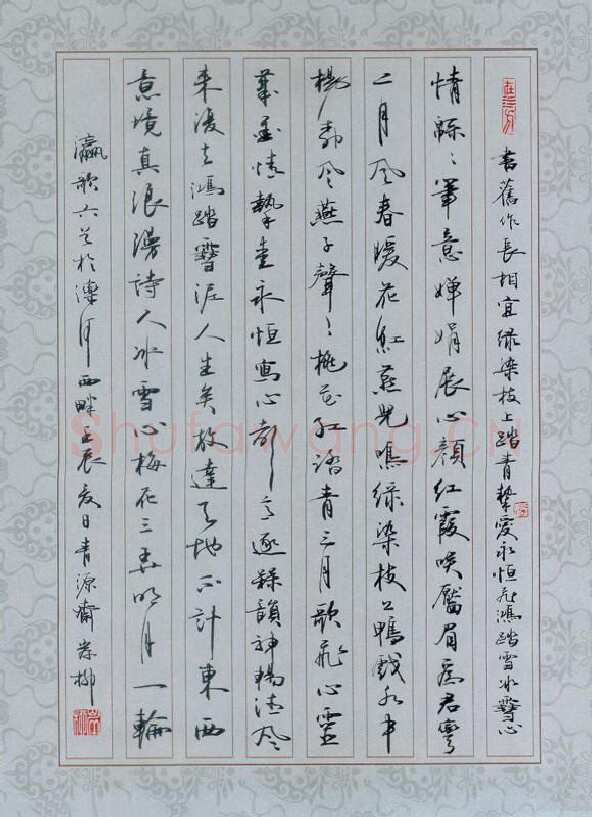 書舊作長相宜綠染枝上踏青摯愛永恒飛鴻踏雪冰雪心
情緜〻筆意嬋娟展心顏紅霞笑靨眉為君彎
二月風春暖花紅燕兒鳴綠染枝上鴨戲水中
楊柳風燕子聲〻桃花紅踏青三月歌飛心靈
義重情摯愛永恒寫心都逐緑韻神暢清風
來漫去鴻踏雪泥人生矣放達天地不計東西
意境真浪漫詩人冰雪心梅花三弄明月一輪
瀛歌六首於灤河西畔壬辰夏日青源齋崇柳
Shufawang.cn